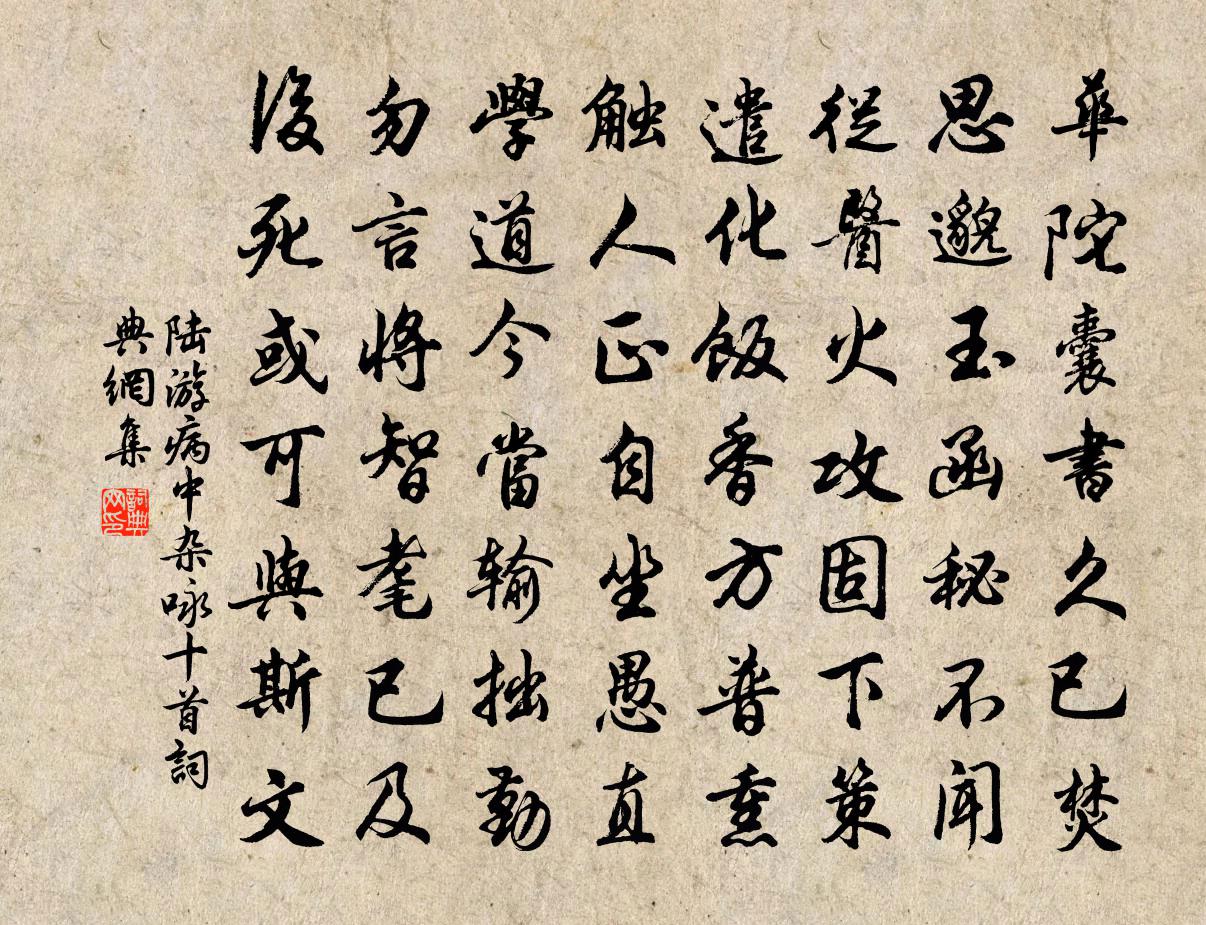 華陀囊書久已焚
思邈玉函秘不聞
從醫火攻固下策
遣化飯香方普熏
触人正自坐愚直
學道今當输拙勤
勿言将智耄已及
後死或可與斯文
陆游病中杂咏十首詞
典網集
詞典
网印